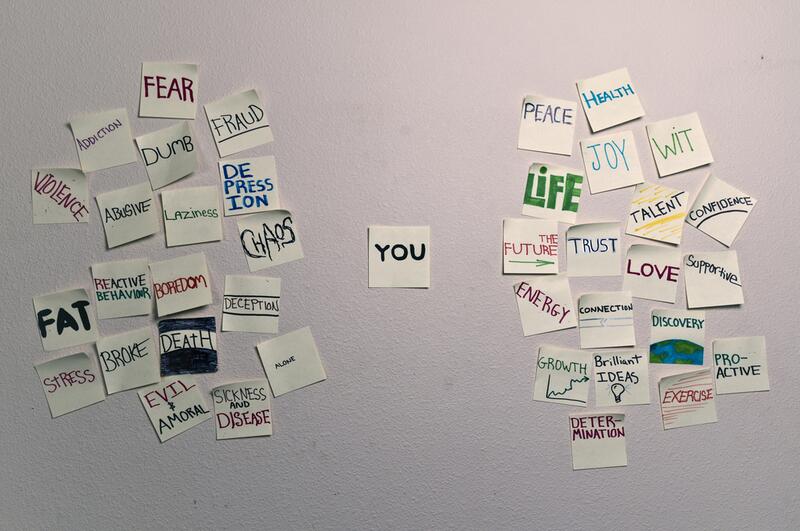 FEAR
ADDICTION
FRAUD
DUMB
VIOLENCE
ABUSIVE
LAZINESS
DE
PRESS
ION
CHAOS
REACTIVE
BEHAVIOUR
BOREDOM
DECEPTION
FAT
BROKE
DEATH
ALONE
STRESS
EVIL
&
AMORAL
SICKNESS
AND
DISEASE
YOU
PEACE
HEALTH
JOY
WIT
LiFE
TALENT
CONFIDENCE
THE
FUTURE
TRUST
LOVE
SUPPORTIVE
ENERGY
CONNECTION
DISCOVERY
GROWTH
BRilliANT
IDEAS
PRO-
ACTIVE
EXERCISE
DETER-
MINATION